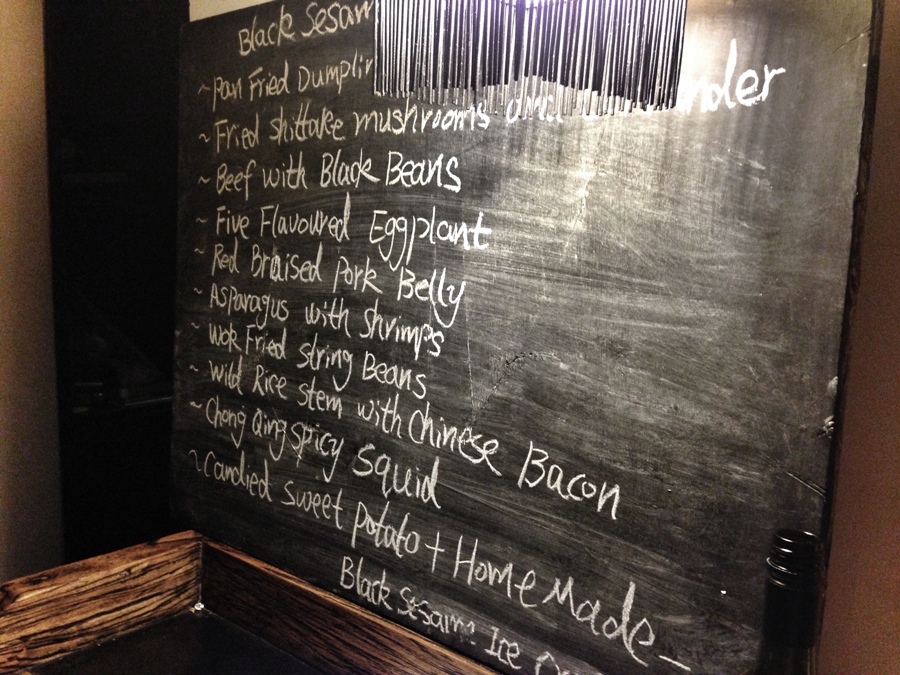 Black Sesam
~ Pan Fried Dumplin
~ Fried shittake mushrooms and nder
~ Beef with Black Beans
~ Five Flavoured Eggplant
~ Red Braised Pork Belly
~ Asparagus with shrimps
~ Wok Fried string Beans
~ Wild Rice stem with Chinese Bacon
~ Chong Qing spicy Squid
~ Candied sweet potato + Home Made -
Black Sesame Ice